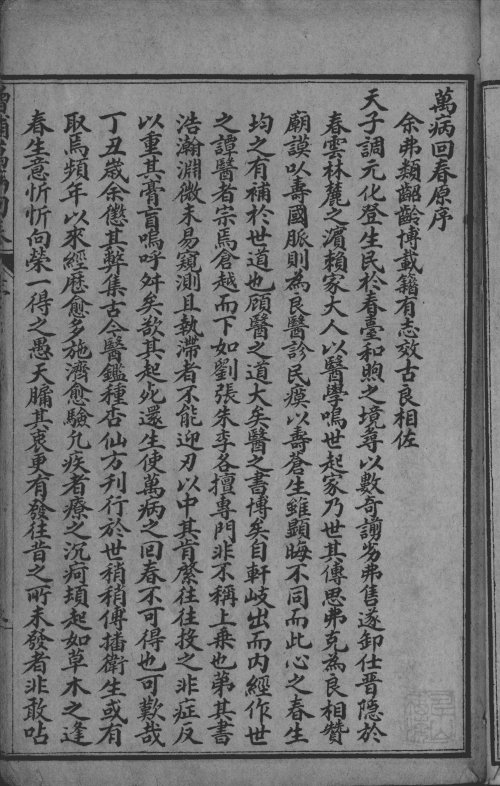 萬病回春原序
余弗類齠齡博載籍有志效古良相佐
天子調元化登生民於春臺和煦之境尋以數奇譾劣弗售遂卸仕晋隱於
春雲林麓之濱賴家大人以醫學鳴世起家乃世其傳思弗克為良相贊
廟謨以壽國脈則為良醫診民瘼以壽蒼生雖顯晦不同而此心之春生
均之有補於世道也顧醫之道大矣醫之書博矣自軒岐出而內經作世
之譚醫者宗焉倉越而下如劉張朱李各擅專門非不稱上乗也苐其書
浩瀚淵微未易窺測且執滯者不能迎刃以中其肯綮往往投之非症反
以重其膏盲嗚呼舛矣欲其起死還生使萬病之回春不可得也可歎哉
丁丑歲余懲其弊集古今醫鑑種杏仙方刊行於世稍稍傳播衛生或有
取焉頻年以來經歷愈多施濟愈驗凡疾者療之沉疴頓起如草木之逢
春生意忻忻向榮一得之愚天牖其衷更有發往昔之所未發者非敢呫